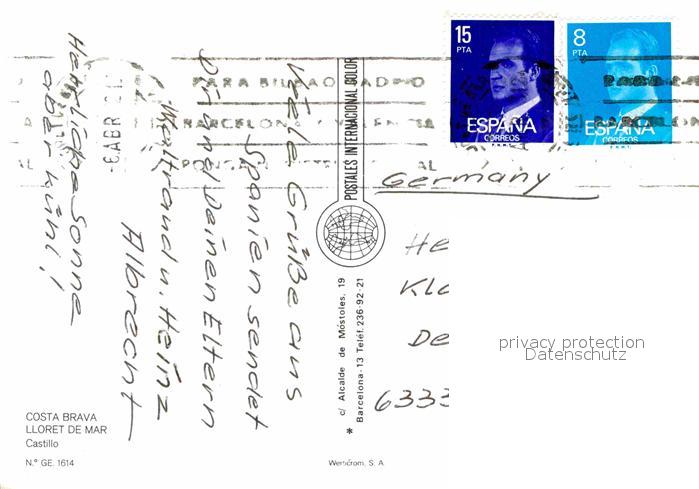 Viele Grüße aus
Spanien sendet
Dir und Deinen Eltern
Waltraud u. Heinz
Albrecht
Herrliche Sonne
aber kühl!
POSTALES INTERNACIONAL COLOR
c/ Alcalde de Móstoles, 19
Barcelona-13 Teléf. 236-92-21
*
15
PTA
ESPAÑA
CORREOS
8
PTA
ESPAÑA
CORREOS
PARA BILBAO MADRID
BARCELONA Y VALENCIA
ABR
Germany
He
Klo
De
6333
privacy protection
Datenschutz
COSTA BRAVA
LLORET DE MAR
Castillo
N.º GE. 1614